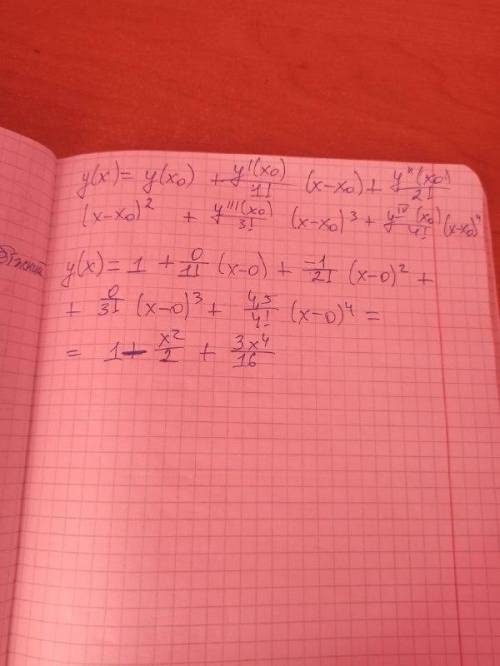 y(x) = y(x₀) + y'(x₀)/1! (x-x₀) + y''(x₀)/2!
(x-x₀)² + y'''(x₀)/3! (x-x₀)³ + y^IV(x₀)/4! (x-x₀)⁴
y(x) = 1 + 0/1! (x-0) + -1/2! (x-0)² +
+ 0/3! (x-0)³ + 4,5/4! (x-0)⁴ =
= 1 - x²/2 + 3x⁴/16